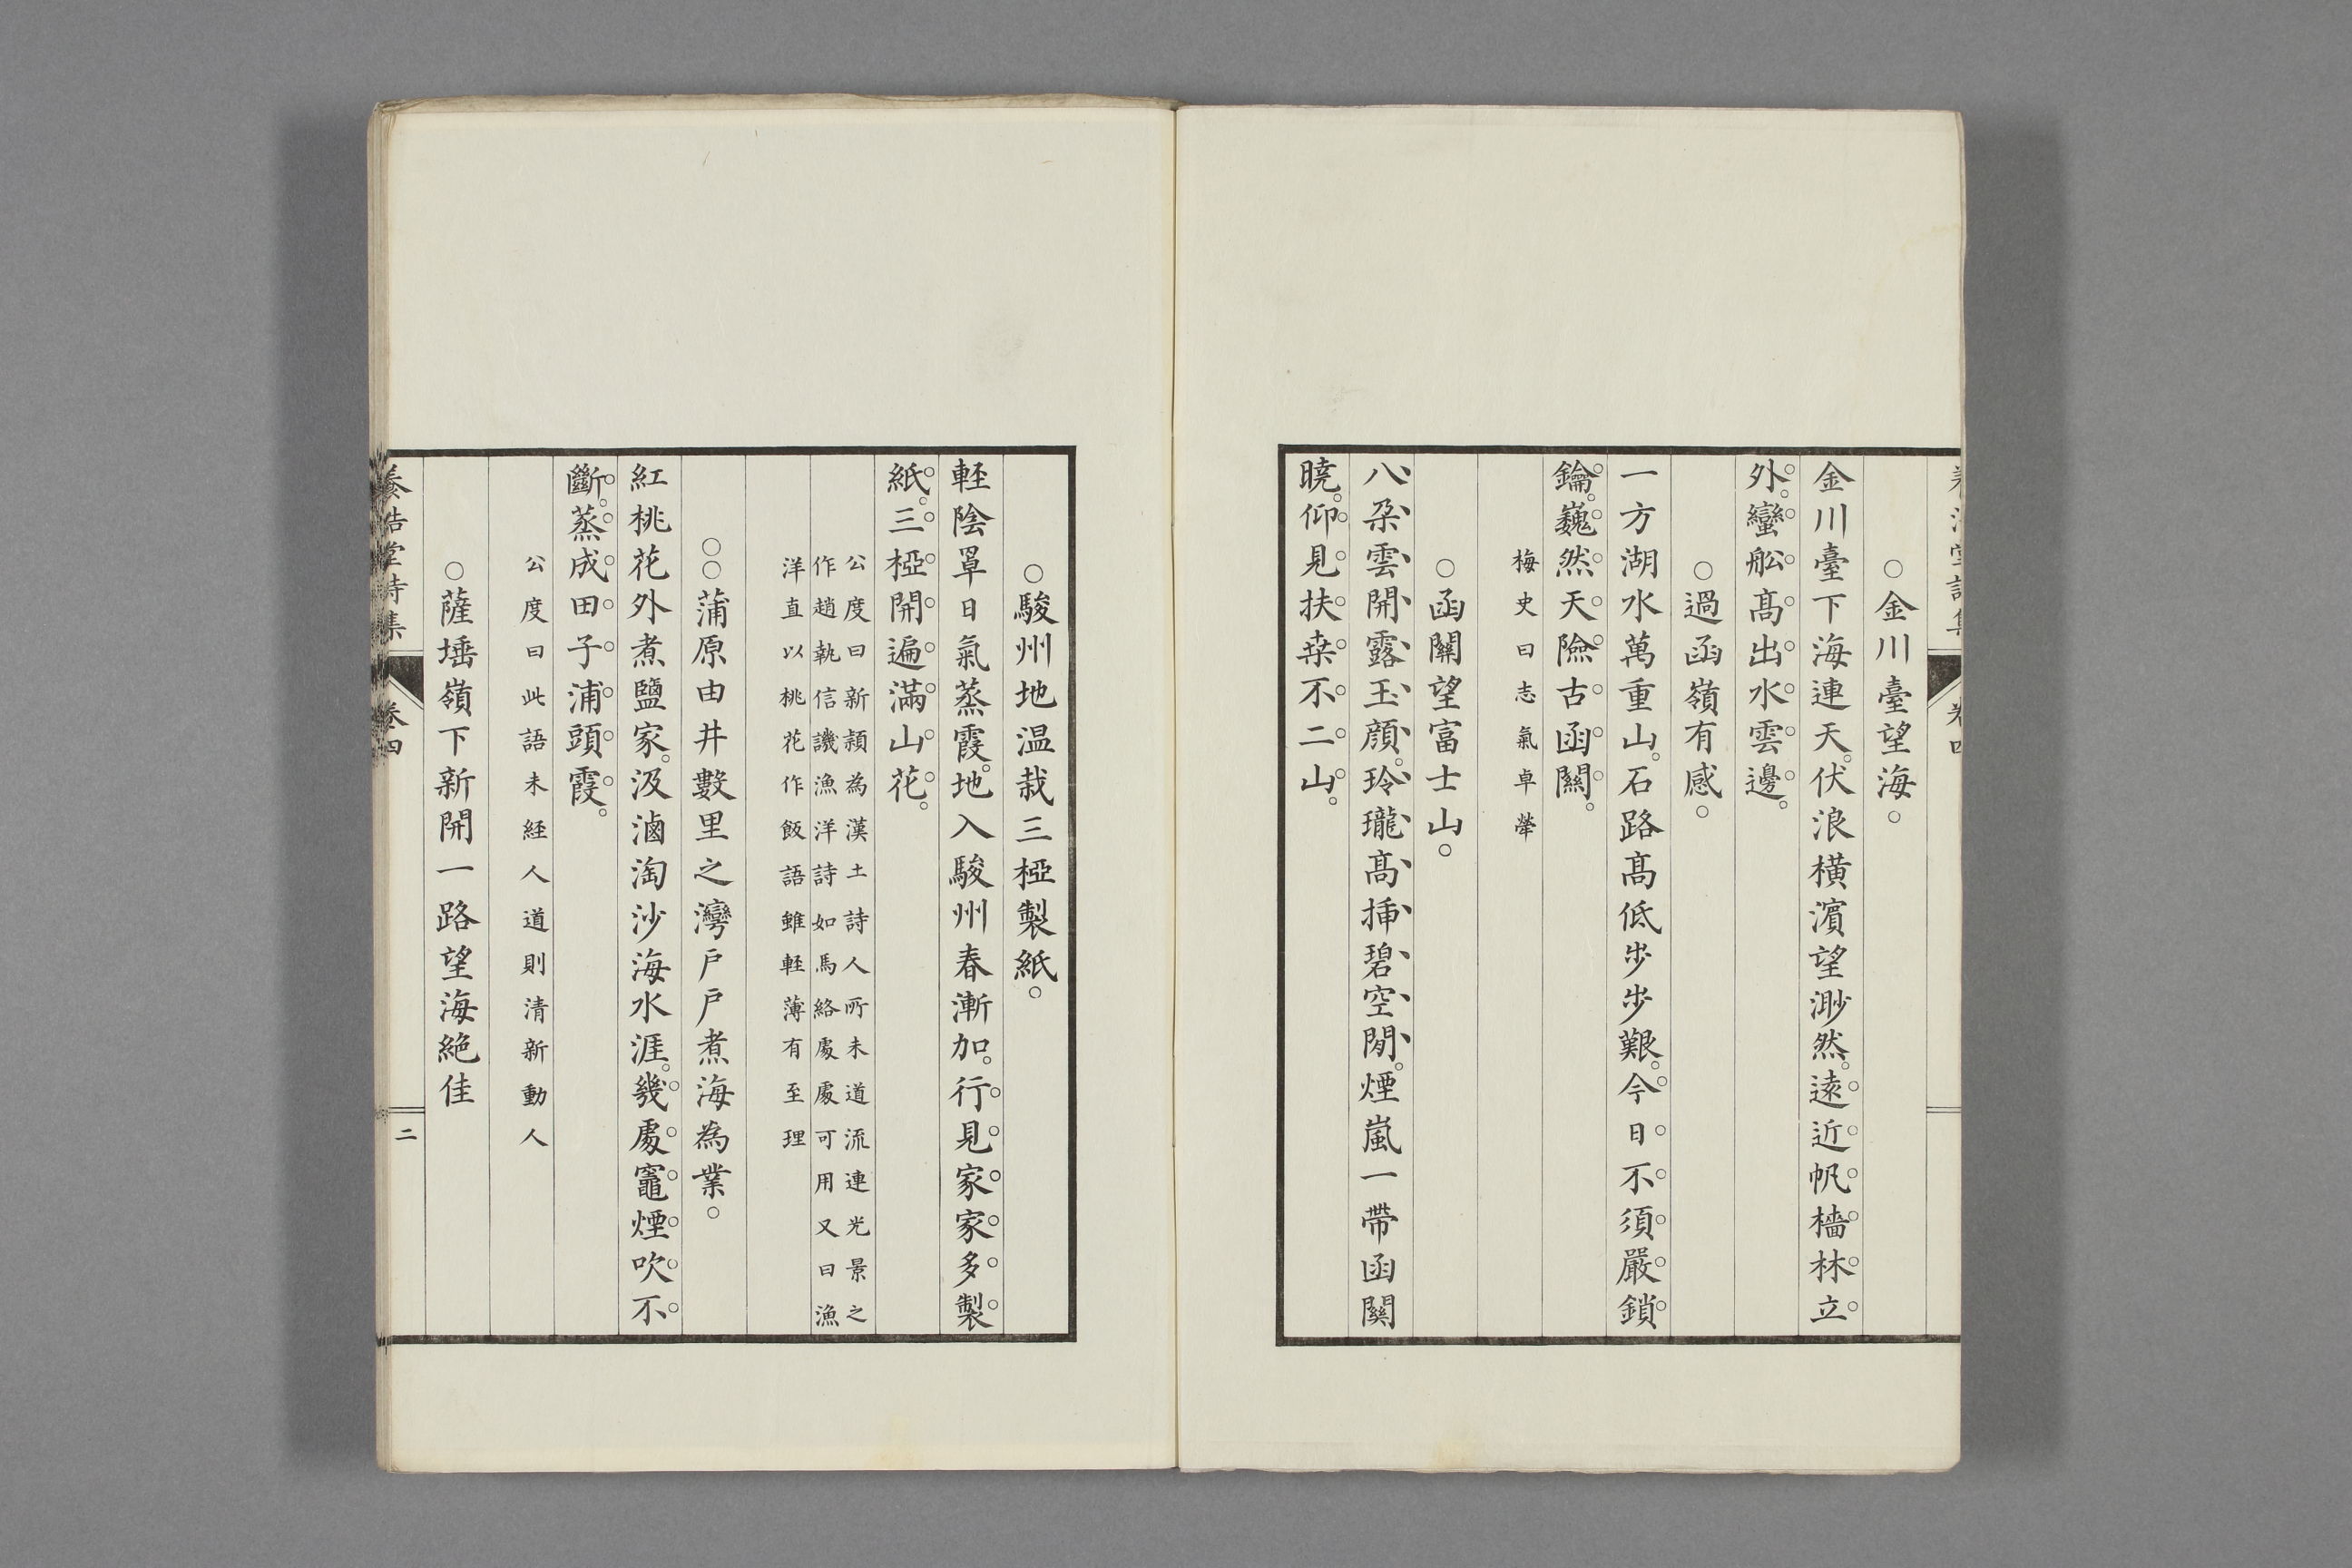 ○金川臺望海。
金川臺下海連天。伏浪橫濱望渺然。遠近帆檣林立
外。蠻舩髙出水雲邊。
○過函嶺有感。
一方湖水萬重山。石路髙低步步艱。今日不須嚴鎖
鑰。巍然天險古函關。
梅史曰志氣卓犖
○函關望富士山。
八朶雲開露玉顔。玲瓏髙挿碧空閒。煙嵐一帶函關
曉。仰見扶桒不二山。
○駿州地温栽三椏製紙。
軽陰罩日氣蒸霞。地入駿州春漸加。行見家家多製
紙。三椏開遍滿山花。
公度曰新頴為漢土詩人所未道流連光景之
作趙執信譏漁洋詩如馬絡處處可用又曰漁
洋直以桃花作飯語雖軽薄有至理
○○蒲原由井數里之灣戶戶煮海為業。
紅桃花外煮鹽家。汲滷淘沙海水涯。幾處竈煙吹不
斷。蒸成田子浦頭霞。
公度曰此語未経人道則清新動人
○薩埵嶺下新開一路望海絶佳
養浩堂詩集 卷四 二